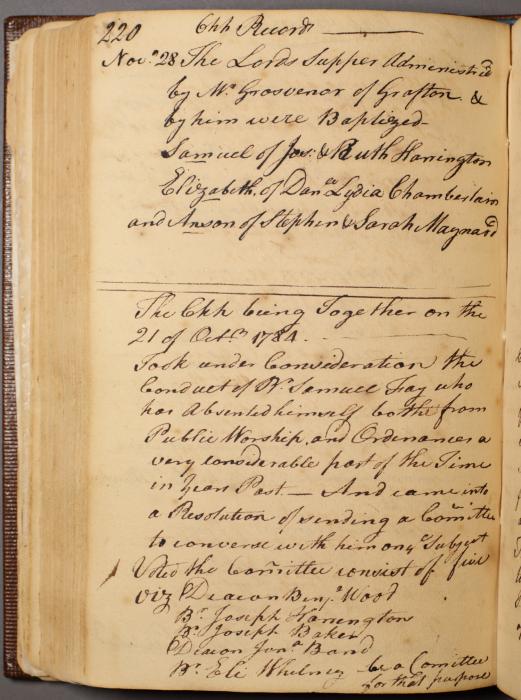 220 Chh Records
Nov.r 28 The Lords Supper Administred
by Mr Grosvenor of Grafton &
by him were Baptized
Samuel of Jos: & Ruth Harrington
Elizabeth of Danll Lydia Chamberlain
and Anson of Stephen & Sarah Maynard
The Chh being Together on the
21 of Octbr 1784.
Took under Consideration the
Conduct of Br Samuel Fay who
has Absented himself both from
Public Worship, and Ordenances a
very considerable part of the Time
in Years Past — And came into
a Resolution of sending a Comittee
to converse with him on ye Subject
Voted the Comittee consist of five
viz Deacon Benj.a Wood
Br Joseph Harrington
Br Joseph Baker
Deacon Jona Bond
Br Eli Whitney be a Comittee
for that purpose